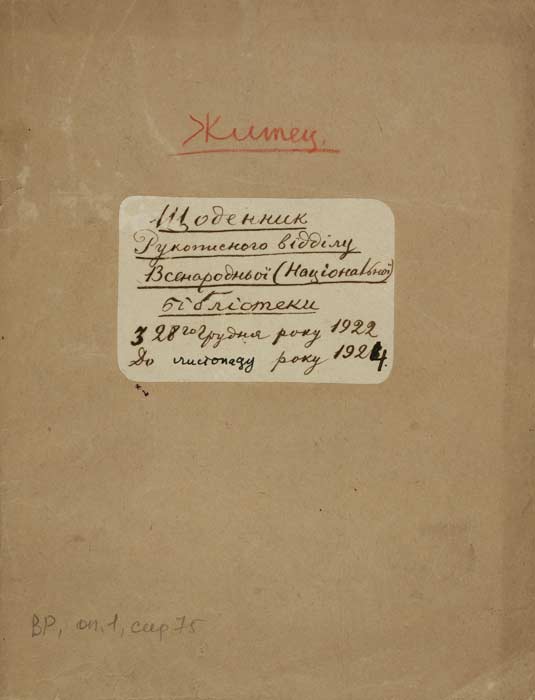 Житец.
Щоденник
Рукописного відділу
Всенародньої (Національної)
бібліотеки
З 28го грудня року 1922
До листопаду року 1924.
ВР, оп. 1, спр 75